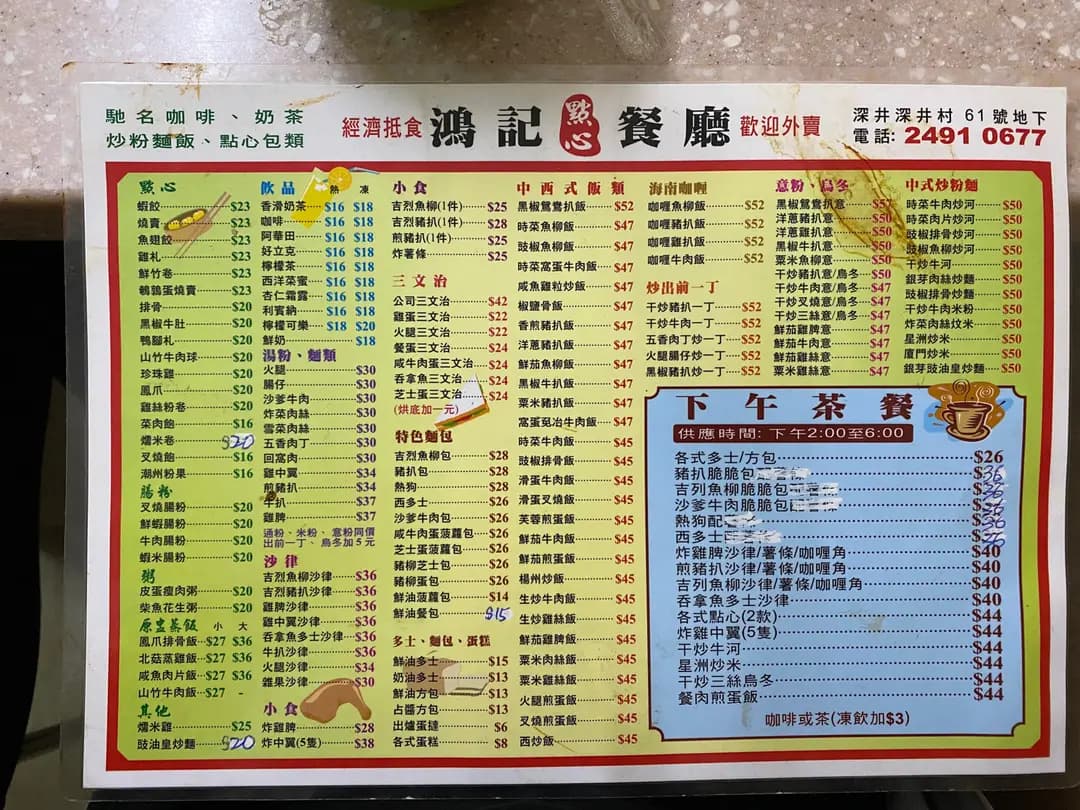 馳名咖啡、奶茶
炒粉麵飯、點心包類
經濟抵食 鴻記 點心 餐廳 歡迎外賣
深井深井村 61 號地下
電話: 2491 0677
點心
蝦餃 $23
燒賣 $23
魚翅餃 $23
雞札 $23
鮮竹卷 $23
鵪鶉蛋燒賣 $23
排骨 $20
黑椒牛肚 $20
鴨腳札 $20
山竹牛肉球 $20
珍珠雞 $20
鳳爪 $20
雞絲粉卷 $20
菜肉飽 $16
燶米卷 $20
叉燒飽 $16
潮州粉果 $16
腸粉
叉燒腸粉 $20
鮮蝦腸粉 $20
牛肉腸粉 $20
蝦米腸粉 $20
粥
皮蛋瘦肉粥 $20
柴魚花生粥 $20
原盅蒸飯 小 大
鳳爪排骨飯 $27 $36
北菇蒸雞飯 $27 $36
咸魚肉片飯 $27 $36
山竹牛肉飯 $27 -
其他
燶米雞 $25
豉油皇炒麵 $20
飲品 熱 凍
香滑奶茶 $16 $18
咖啡 $16 $18
阿華田 $16 $18
好立克 $16 $18
檸檬茶 $16 $18
西洋菜蜜 $16 $18
杏仁霜露 $16 $18
利賓納 $16 $18
檸檬可樂 $18 $20
鮮奶 $18
湯粉、麵類
火腿 $30
腸仔 $30
沙爹牛肉 $30
炸菜肉絲 $30
雪菜肉絲 $30
五香肉丁 $30
回窩肉 $30
雞中翼 $34
煎豬扒 $34
牛扒 $37
雞脾 $37
通粉、米粉、意粉同價
出前一丁、烏冬加 5 元
沙律
吉烈魚柳沙律 $36
吉烈豬扒沙律 $36
雞脾沙律 $36
雞中翼沙律 $36
吞拿魚多士沙律 $36
牛扒沙律 $36
火腿沙律 $34
雜果沙律 $30
小食
炸雞脾 $28
炸中翼(5隻) $38
小食
吉烈魚柳(1件) $25
吉烈豬扒(1件) $28
煎豬扒(1件) $25
炸薯條 $25
三文治
公司三文治 $42
雞蛋三文治 $22
火腿三文治 $22
餐蛋三文治 $24
咸牛肉蛋三文治 $24
吞拿魚三文治 $24
芝士蛋三文治 $24
(烘底加一元)
特色麵包
吉烈魚柳包 $28
豬扒包 $28
熱狗 $28
西多士 $26
沙爹牛肉包 $26
咸牛肉蛋菠蘿包 $26
芝士蛋菠蘿包 $26
豬柳芝士包 $26
豬柳蛋包 $26
鮮油菠蘿包 $14
鮮油餐包 $15
多士、麵包、蛋糕
鮮油多士 $15
奶油多士 $13
鮮油方包 $13
占醬方包 $13
出爐蛋撻 $6
各式蛋糕 $8
中西式飯類
黑椒鴛鴦扒飯 $52
時菜魚柳飯 $47
豉椒魚柳飯 $47
時菜窩蛋牛肉飯 $47
咸魚雞粒炒飯 $47
椒鹽骨飯 $47
香煎豬扒飯 $47
洋蔥豬扒飯 $47
鮮茄魚柳飯 $47
黑椒牛扒飯 $47
粟米豬扒飯 $47
窩蛋免治牛肉飯 $47
時菜牛肉飯 $45
豉椒排骨飯 $45
滑蛋牛肉飯 $45
滑蛋叉燒飯 $45
芙蓉煎蛋飯 $45
鮮茄牛肉飯 $45
鮮茄煎蛋飯 $45
楊州炒飯 $45
生炒牛肉飯 $45
生炒雞絲飯 $45
鮮茄雞脾飯 $45
粟米肉絲飯 $45
粟米雞絲飯 $45
火腿煎蛋飯 $45
叉燒煎蛋飯 $45
西炒飯 $45
海南咖喱
咖喱魚柳飯 $52
咖喱豬扒飯 $52
咖喱雞扒飯 $52
咖喱牛肉飯 $52
炒出前一丁
干炒豬扒一丁 $52
干炒牛肉一丁 $52
五香肉丁炒一丁 $52
火腿腸仔炒一丁 $52
黑椒豬扒炒一丁 $52
意粉、烏冬
黑椒鴛鴦扒意 $57
洋蔥豬扒意 $50
洋蔥雞扒意 $50
黑椒牛扒意 $50
粟米魚柳意 $50
干炒豬扒意/烏冬 $50
干炒牛肉意/烏冬 $47
干炒叉燒意/烏冬 $47
干炒三絲意/烏冬 $47
鮮茄雞脾意 $47
鮮茄牛肉意 $47
鮮茄雞絲意 $47
粟米雞絲意 $47
中式炒粉麵
時菜牛肉炒河 $50
時菜肉片炒河 $50
豉椒排骨炒河 $50
豉椒魚柳炒河 $50
干炒牛河 $50
銀芽肉絲炒麵 $50
豉椒排骨炒麵 $50
干炒牛肉米粉 $50
炸菜肉絲炆米 $50
星洲炒米 $50
廈門炒米 $50
銀芽豉油皇炒麵 $50
下午茶餐
供應時間: 下午2:00至6:00
各式多士/方包 $26
豬扒脆脆包 $36
吉列魚柳脆脆包 $36
沙爹牛肉脆脆包 $36
熱狗配 $36
西多士 $36
炸雞脾沙律/薯條/咖喱角 $40
煎豬扒沙律/薯條/咖喱角 $40
吉列魚柳沙律/薯條/咖喱角 $40
吞拿魚多士沙律 $40
各式點心(2款) $44
炸雞中翼(5隻) $44
干炒牛河 $44
星洲炒米 $44
干炒三絲烏冬 $44
餐肉煎蛋飯 $44
咖啡或茶(凍飲加$3)